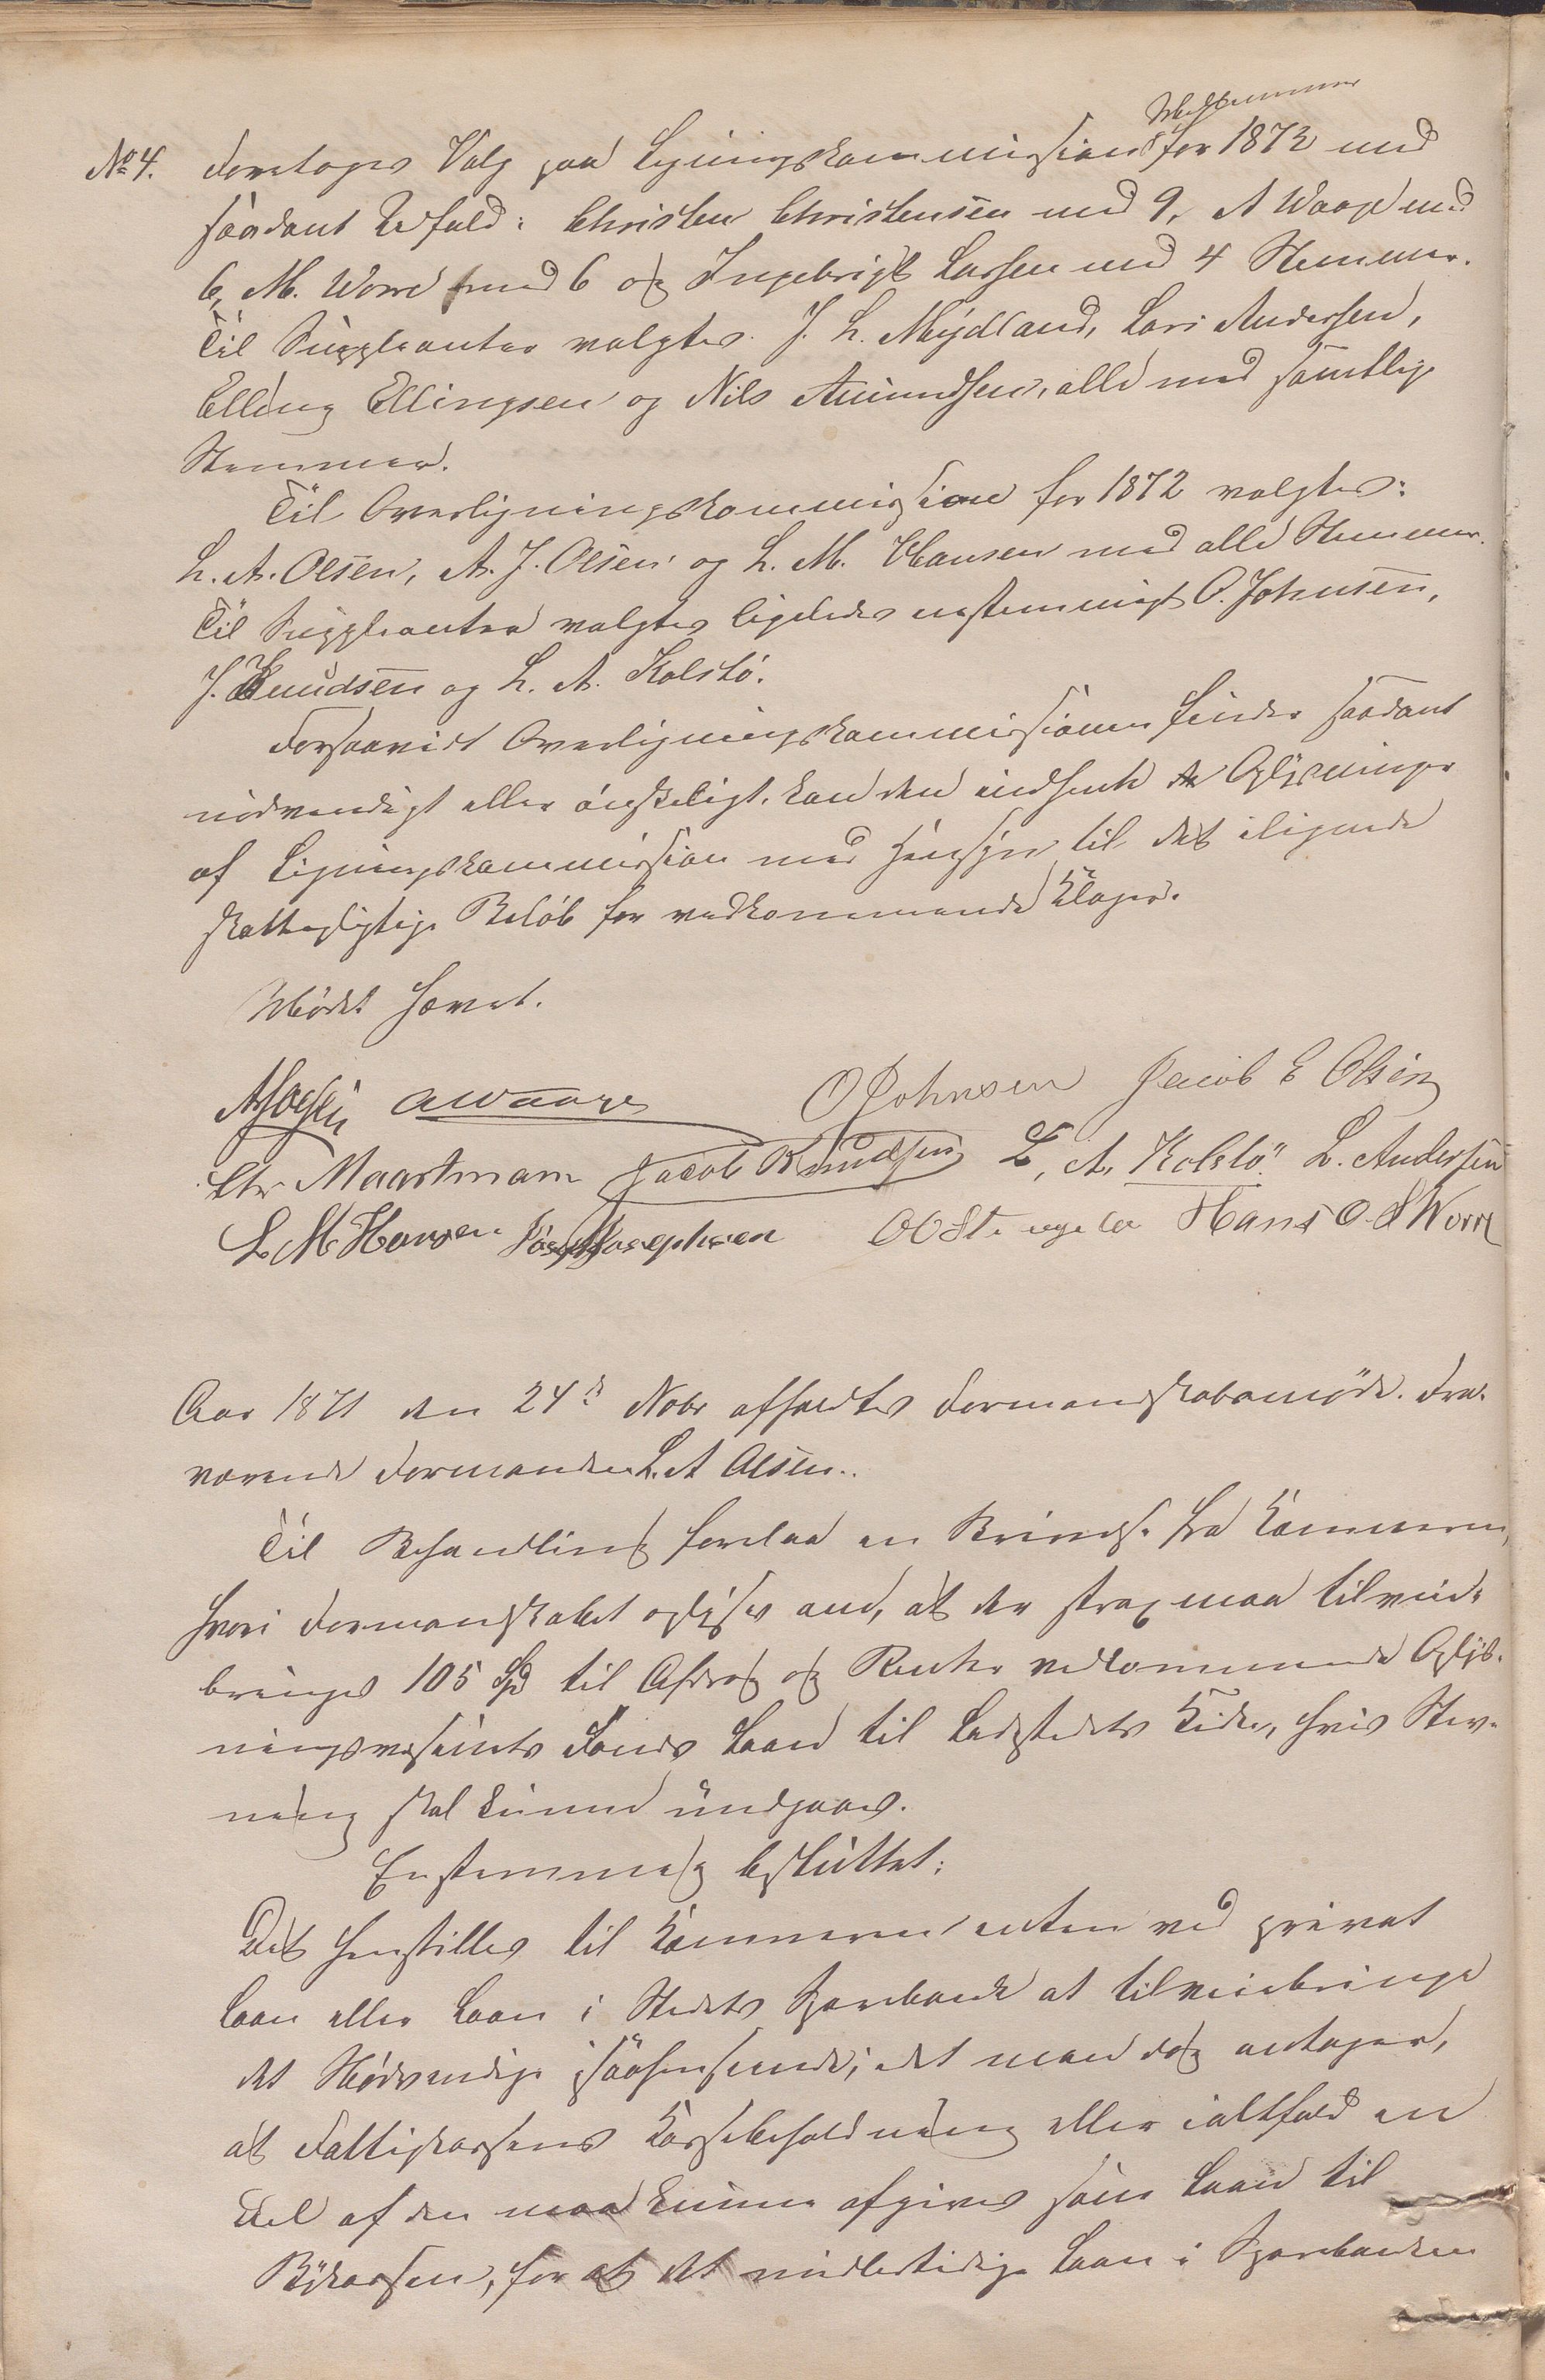 Medlemmer
No 4. Foretoges Valg paa Ligningskommissions for 1872 med
saadant Udfald: Christen Christensen med 9, A Waage med
6, M. Worre med 6 og Ingebrigt Larsen med 4 Stemmer.
Til Suppleanter valgtes J. L. Mydland, Lars Andersen,
Elling Ellingsen og Nils Amundsen, alle med samtlige
Stemmer.
Til Overligningskommission for 1872 valgtes:
L. A. Olsen, A. J. Olsen og L. M. Hansen med alle Stemmer.
Til Suppleanter valgtes ligeledes enstemmigt O. Johnsen,
J. Knudsen og L. A. Kolstö.
Forsaavidt Overligningskommissionen finder saadant
nödvendigt eller önskeligt, kan den indhente Oplysninger
af Ligningskommission med Hensyn til det ilignede
skattepligtige Belöb for vedkommende Klager.
Mödet hævet.
A J Olsen A Waage O Johnsen Jacob E Olsen
Chr Maartmann Jacob Knudsen L. A. Kolstö L. Andersen
L M Hansen Josephsen Hans O. S Worre
Aar 1871 den 24de Nobr afholdtes Formandskabsmöde. Fra-
værende Formanden L. A Olsen.
Til Behandling forelaa en Skrivelse fra Kæmneren,
hvori Formandskabet oplyses om, at der strax maa tilveie-
bringes 105 Spd til Afdrag og Renter vedkommende Oplys-
ningsvæsenets Fonds Laan til Ladestedets Kirke, hvis Stev-
ning skal kunne undgaaes.
Enstemmig besluttet:
Det henstilles til Kæmneren enten ved privat
Laan eller Laan i Stedets Sparebank at tilveiebringe
det Nödvendige isaahenseende; idet man dog antager,
at Fattigkassens Kassebeholdning eller ialtfald en
Del af den maa kunne afgives som Laan til
Bykassen, for at det midlertidige Laan i Sparebanken